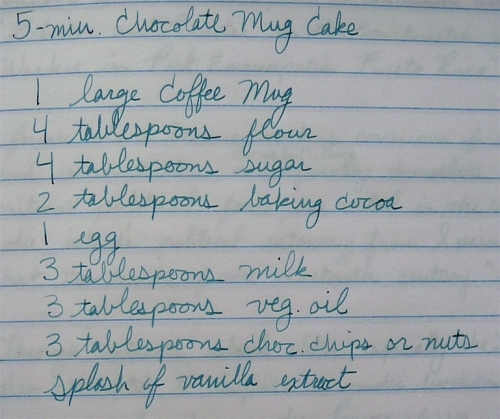 5-min. Chocolate Mug Cake
1 large Coffee Mug
4 tablespoons flour
4 tablespoons sugar
2 tablespoons baking cocoa
1 egg
3 tablespoons milk
3 tablespoons veg. oil
3 tablespoons choc. chips or nuts
splash of vanilla extract